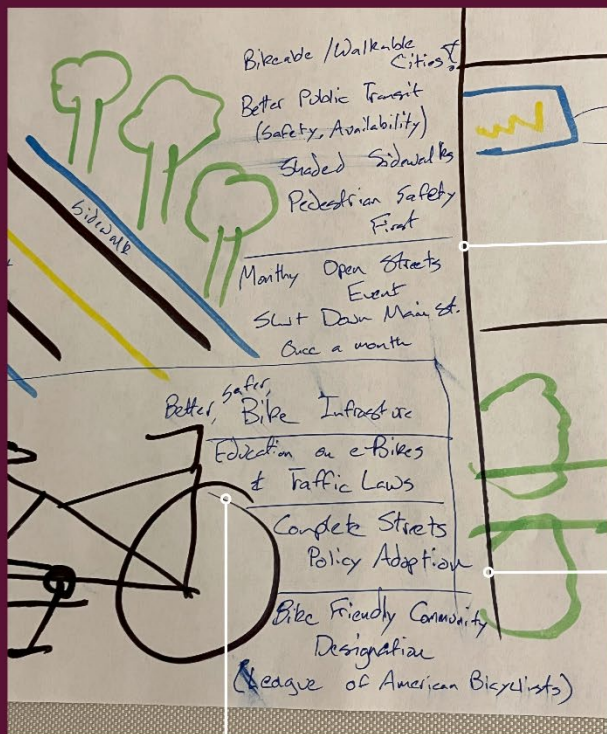 Bikeable / Walkable
Cities!
Better Public Transit
(Safety, Availability)
Shaded Sidewalks
Pedestrian Safety
First
Sidewalk
Monthy Open Streets
Event
Shut Down Main St.
Once a month
Better, Safer,
Bike Infrasture
Education on e-Bikes
& Traffic Laws
Complete Streets
Policy Adoption
Bike Friendly Community
Designation
(League of American Bicyclists)